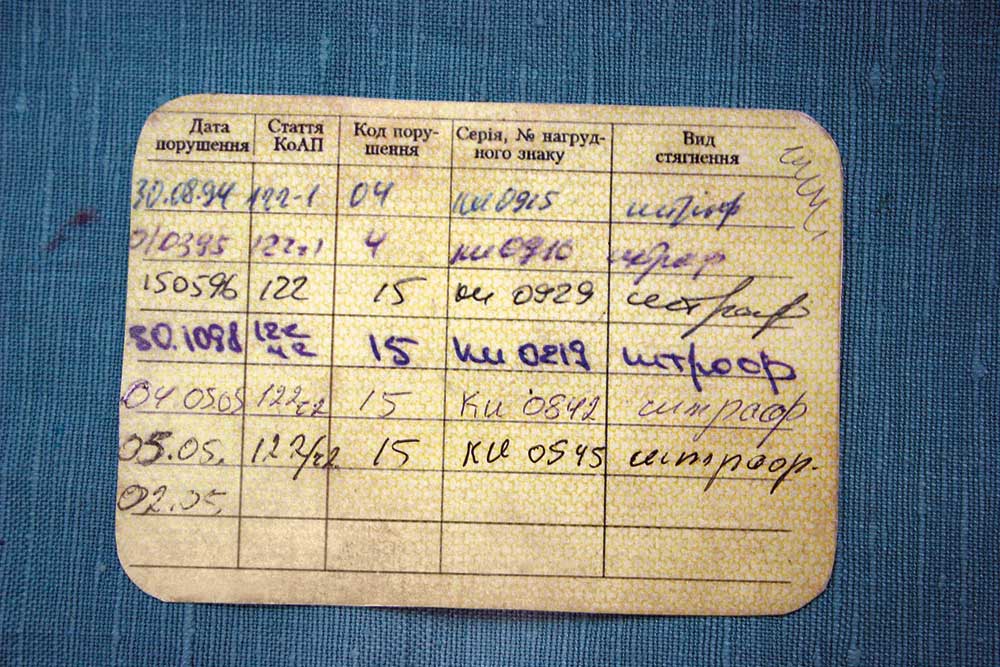 Дата порушення Стаття КоАП Код пору- шення Серія, № нагруд- ного знаку Вид стягнення
30.08.94 122-1 04 КИ 0915 штраф
010395 122ч1 4 КИ 0910 штраф
150596 122 15 КИ 0929 штраф
30.1098 122 ч2 15 КИ 0219 штраф
04 05.05 122ч2 15 КИ 0842 штраф
05.05. 122/ч2 15 КИ 0545 штраф.
02.05.